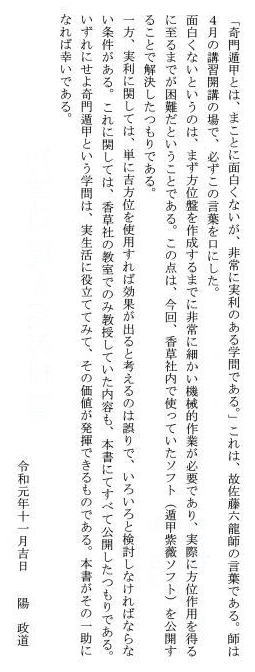 「奇門遁甲とは、まことに面白くないが、非常に実利のある学問である。」これは、故佐藤六龍師の言葉である。師は
4月の講習開講の場で、必ずこの言葉を口にした。
面白くないというのは、まず方位盤を作成するまでに非常に細かい機械的作業が必要であり、実際に方位作用を得る
に至るまでが困難だということである。この点は、今回、香草社内で使っていたソフト（遁甲紫薇ソフト）を公開す
ることで解決したつもりである。
一方、実利に関しては、単に吉方位を使用すれば効果が出ると考えるのは誤りで、いろいろと検討しなければならな
い条件がある。これに関しては、香草社の教室でのみ教授していた内容も、本書にてすべて公開したつもりである。
いずれにせよ奇門遁甲という学問は、実生活に役立ててみて、その価値が発揮できるものである。本書がその一助に
なれば幸いである。
令和元年十一月吉日　陽　政道